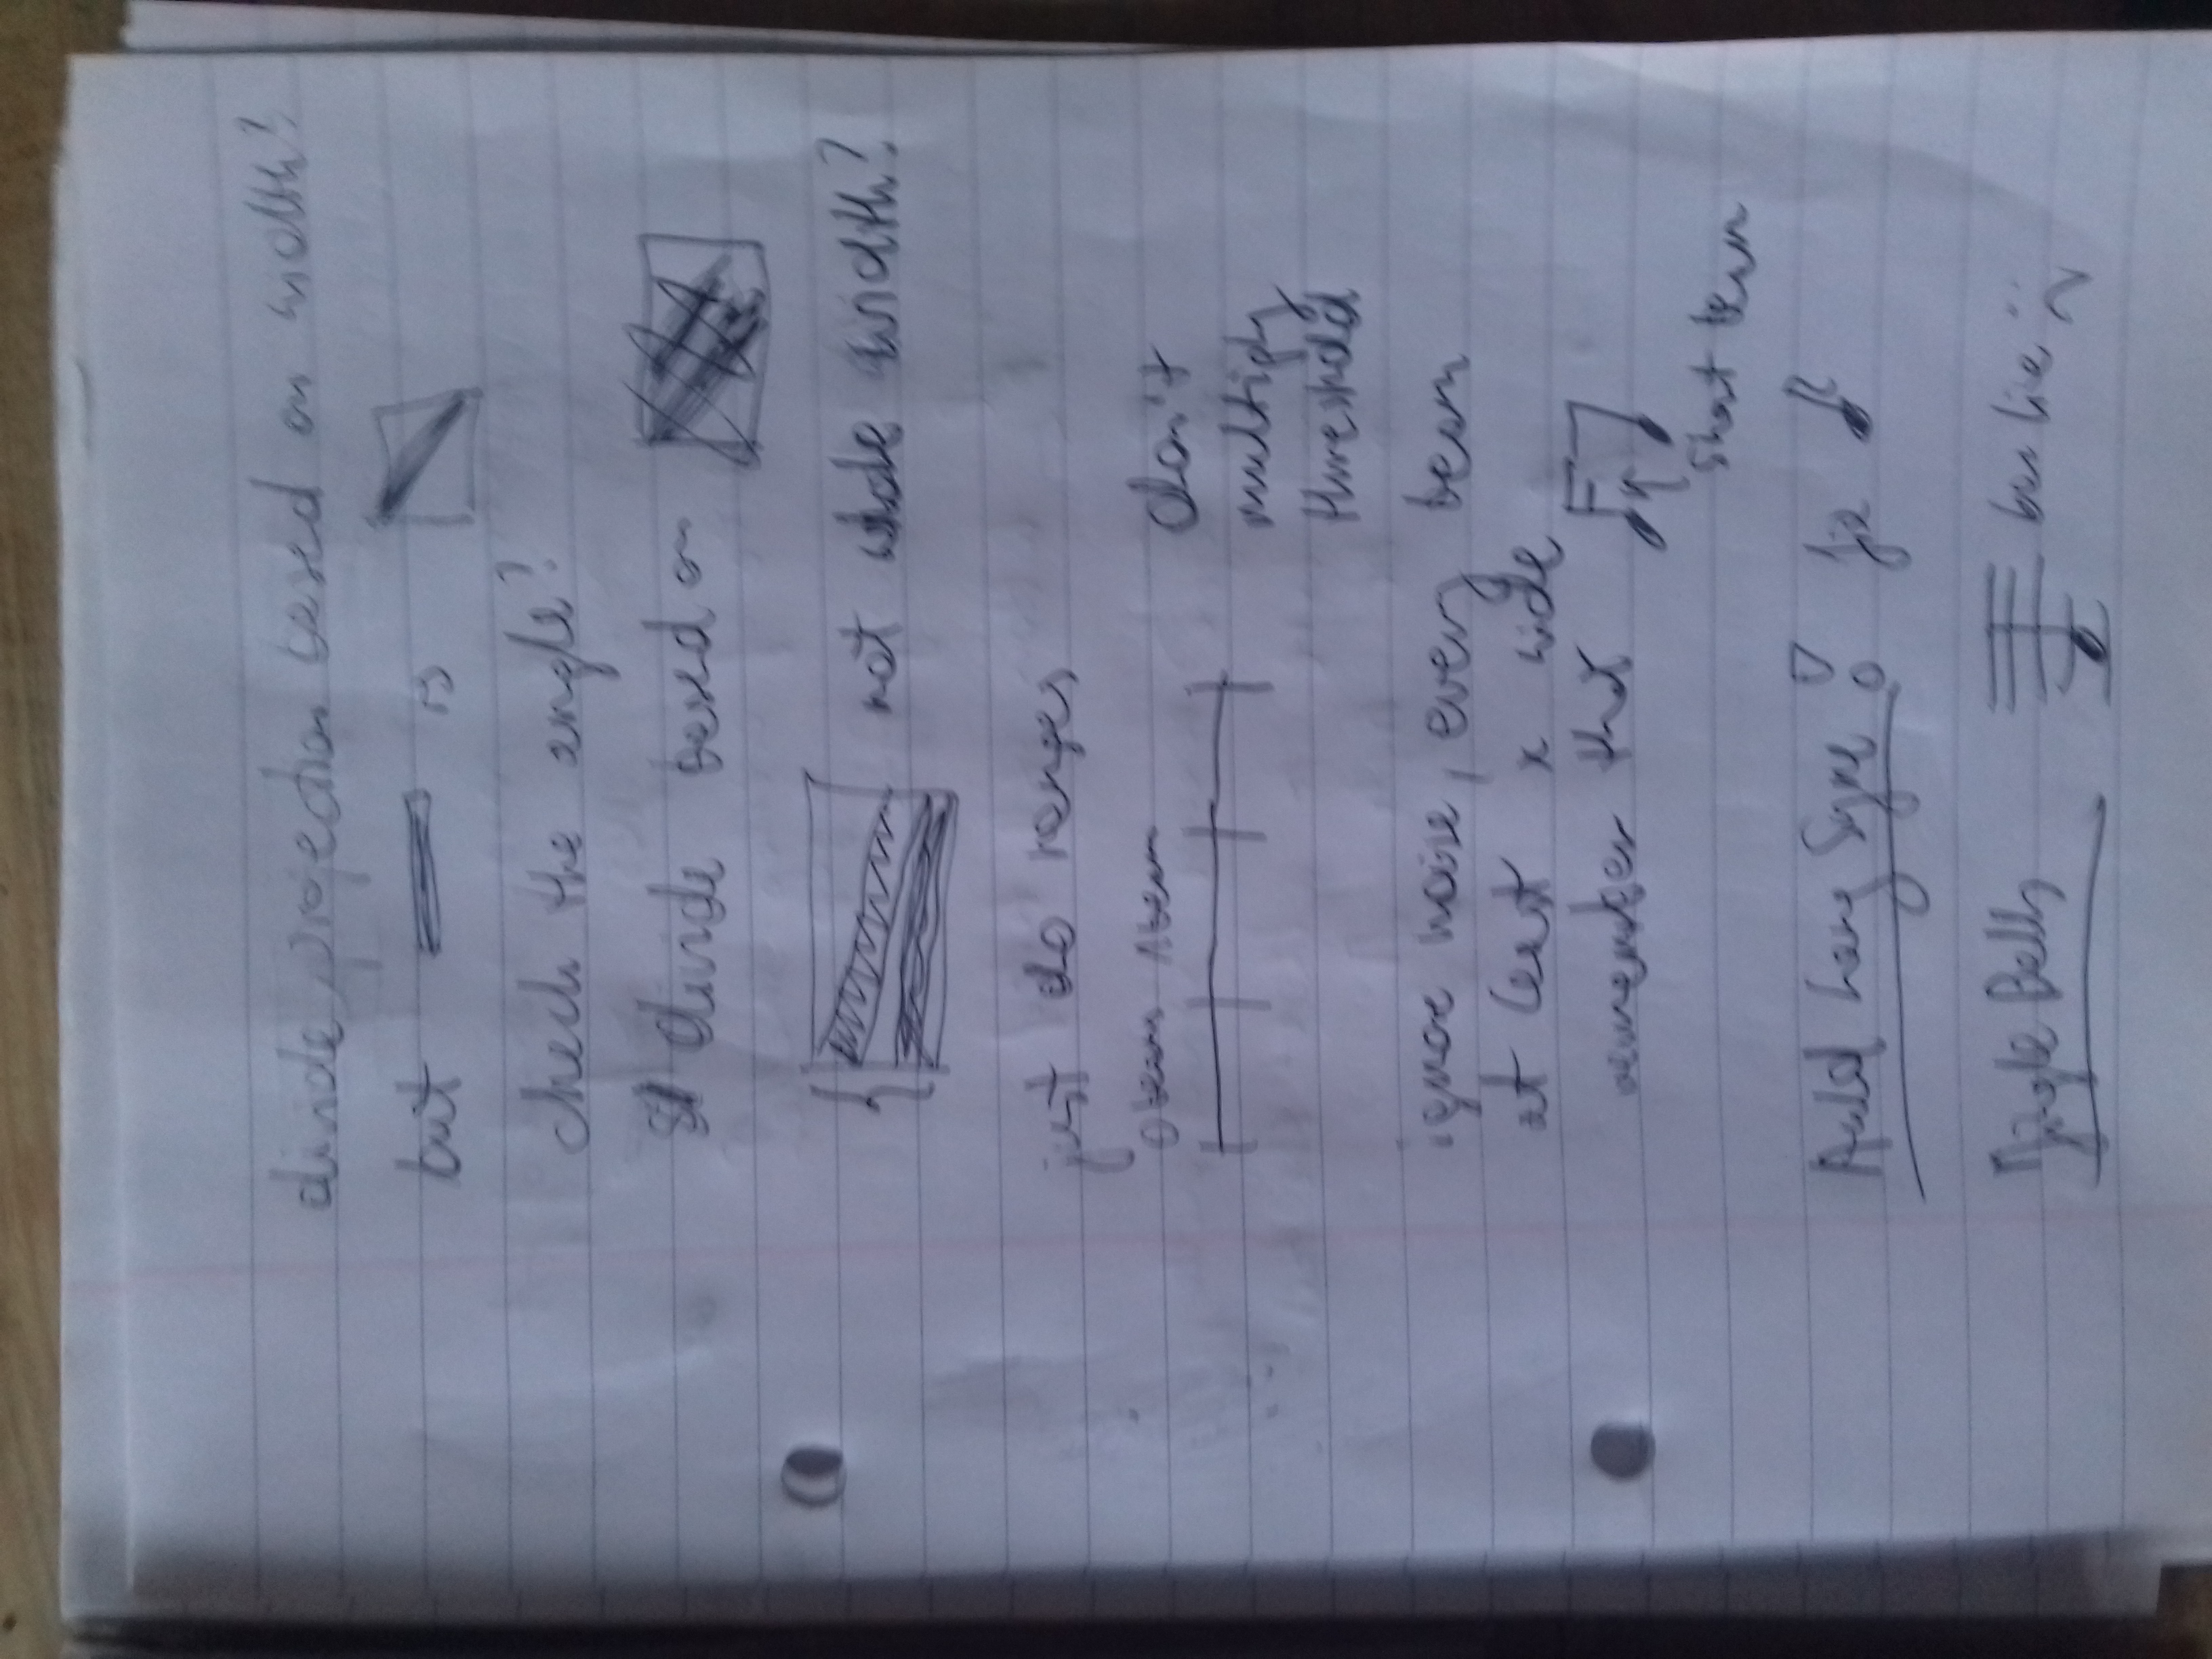 divide projection based on width?
but is
check the angle?
divide based on
not whole width?
just do ranges
0 beams 1 beam
don't
multiply
threshold
ignore noise, every beam
at least x wide
remember that
short beam
Auld Lang Syne ! fix
Jingle Bells bar line :(